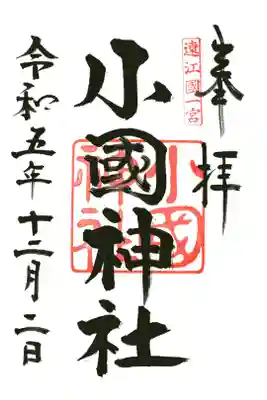 奉拝
遠江國一宮
小國神社
小國神社
令和五年十二月二日